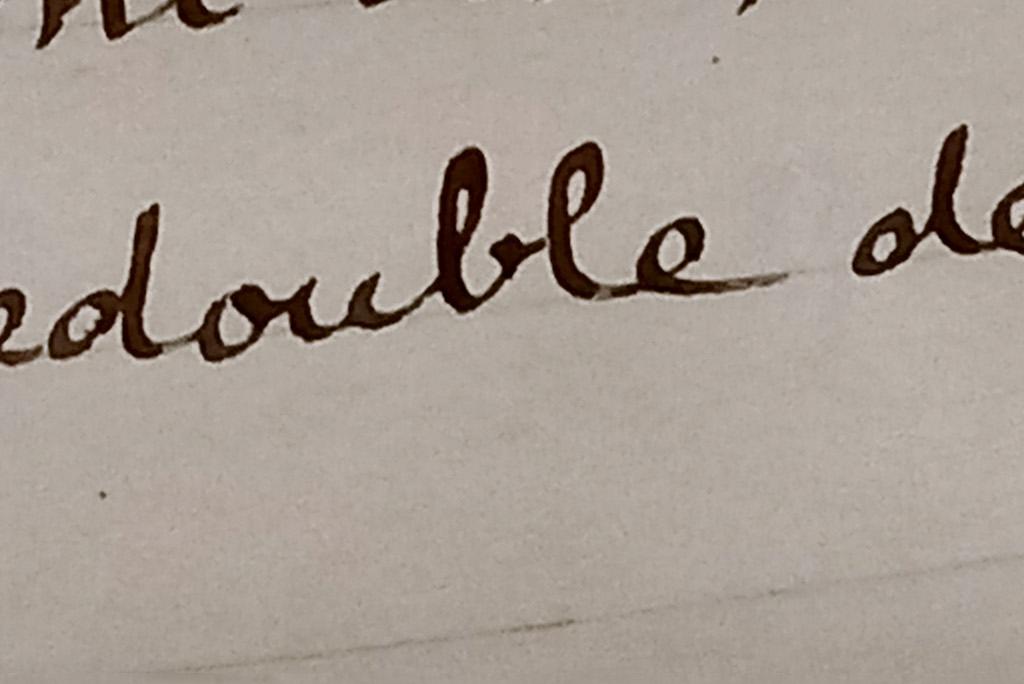 edouble de